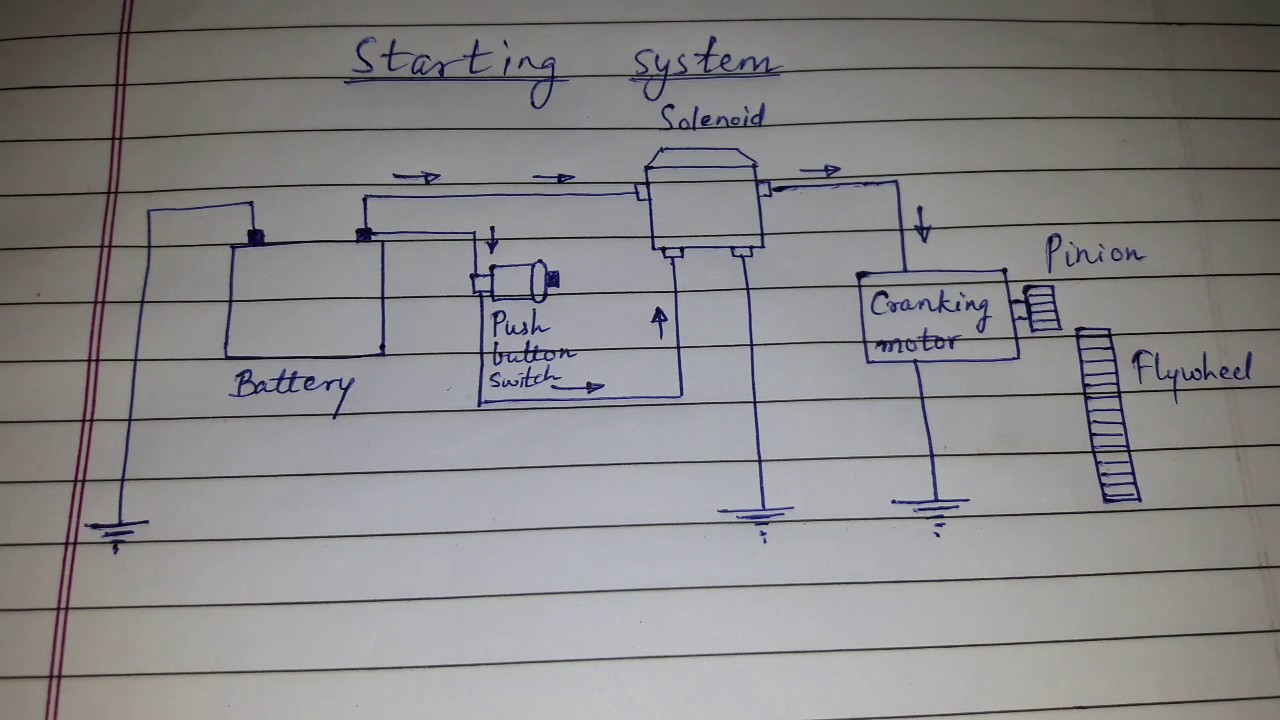 Starting system
Solenoid
Pinion
Cranking
motor
Push
button
switch
Battery
Flywheel